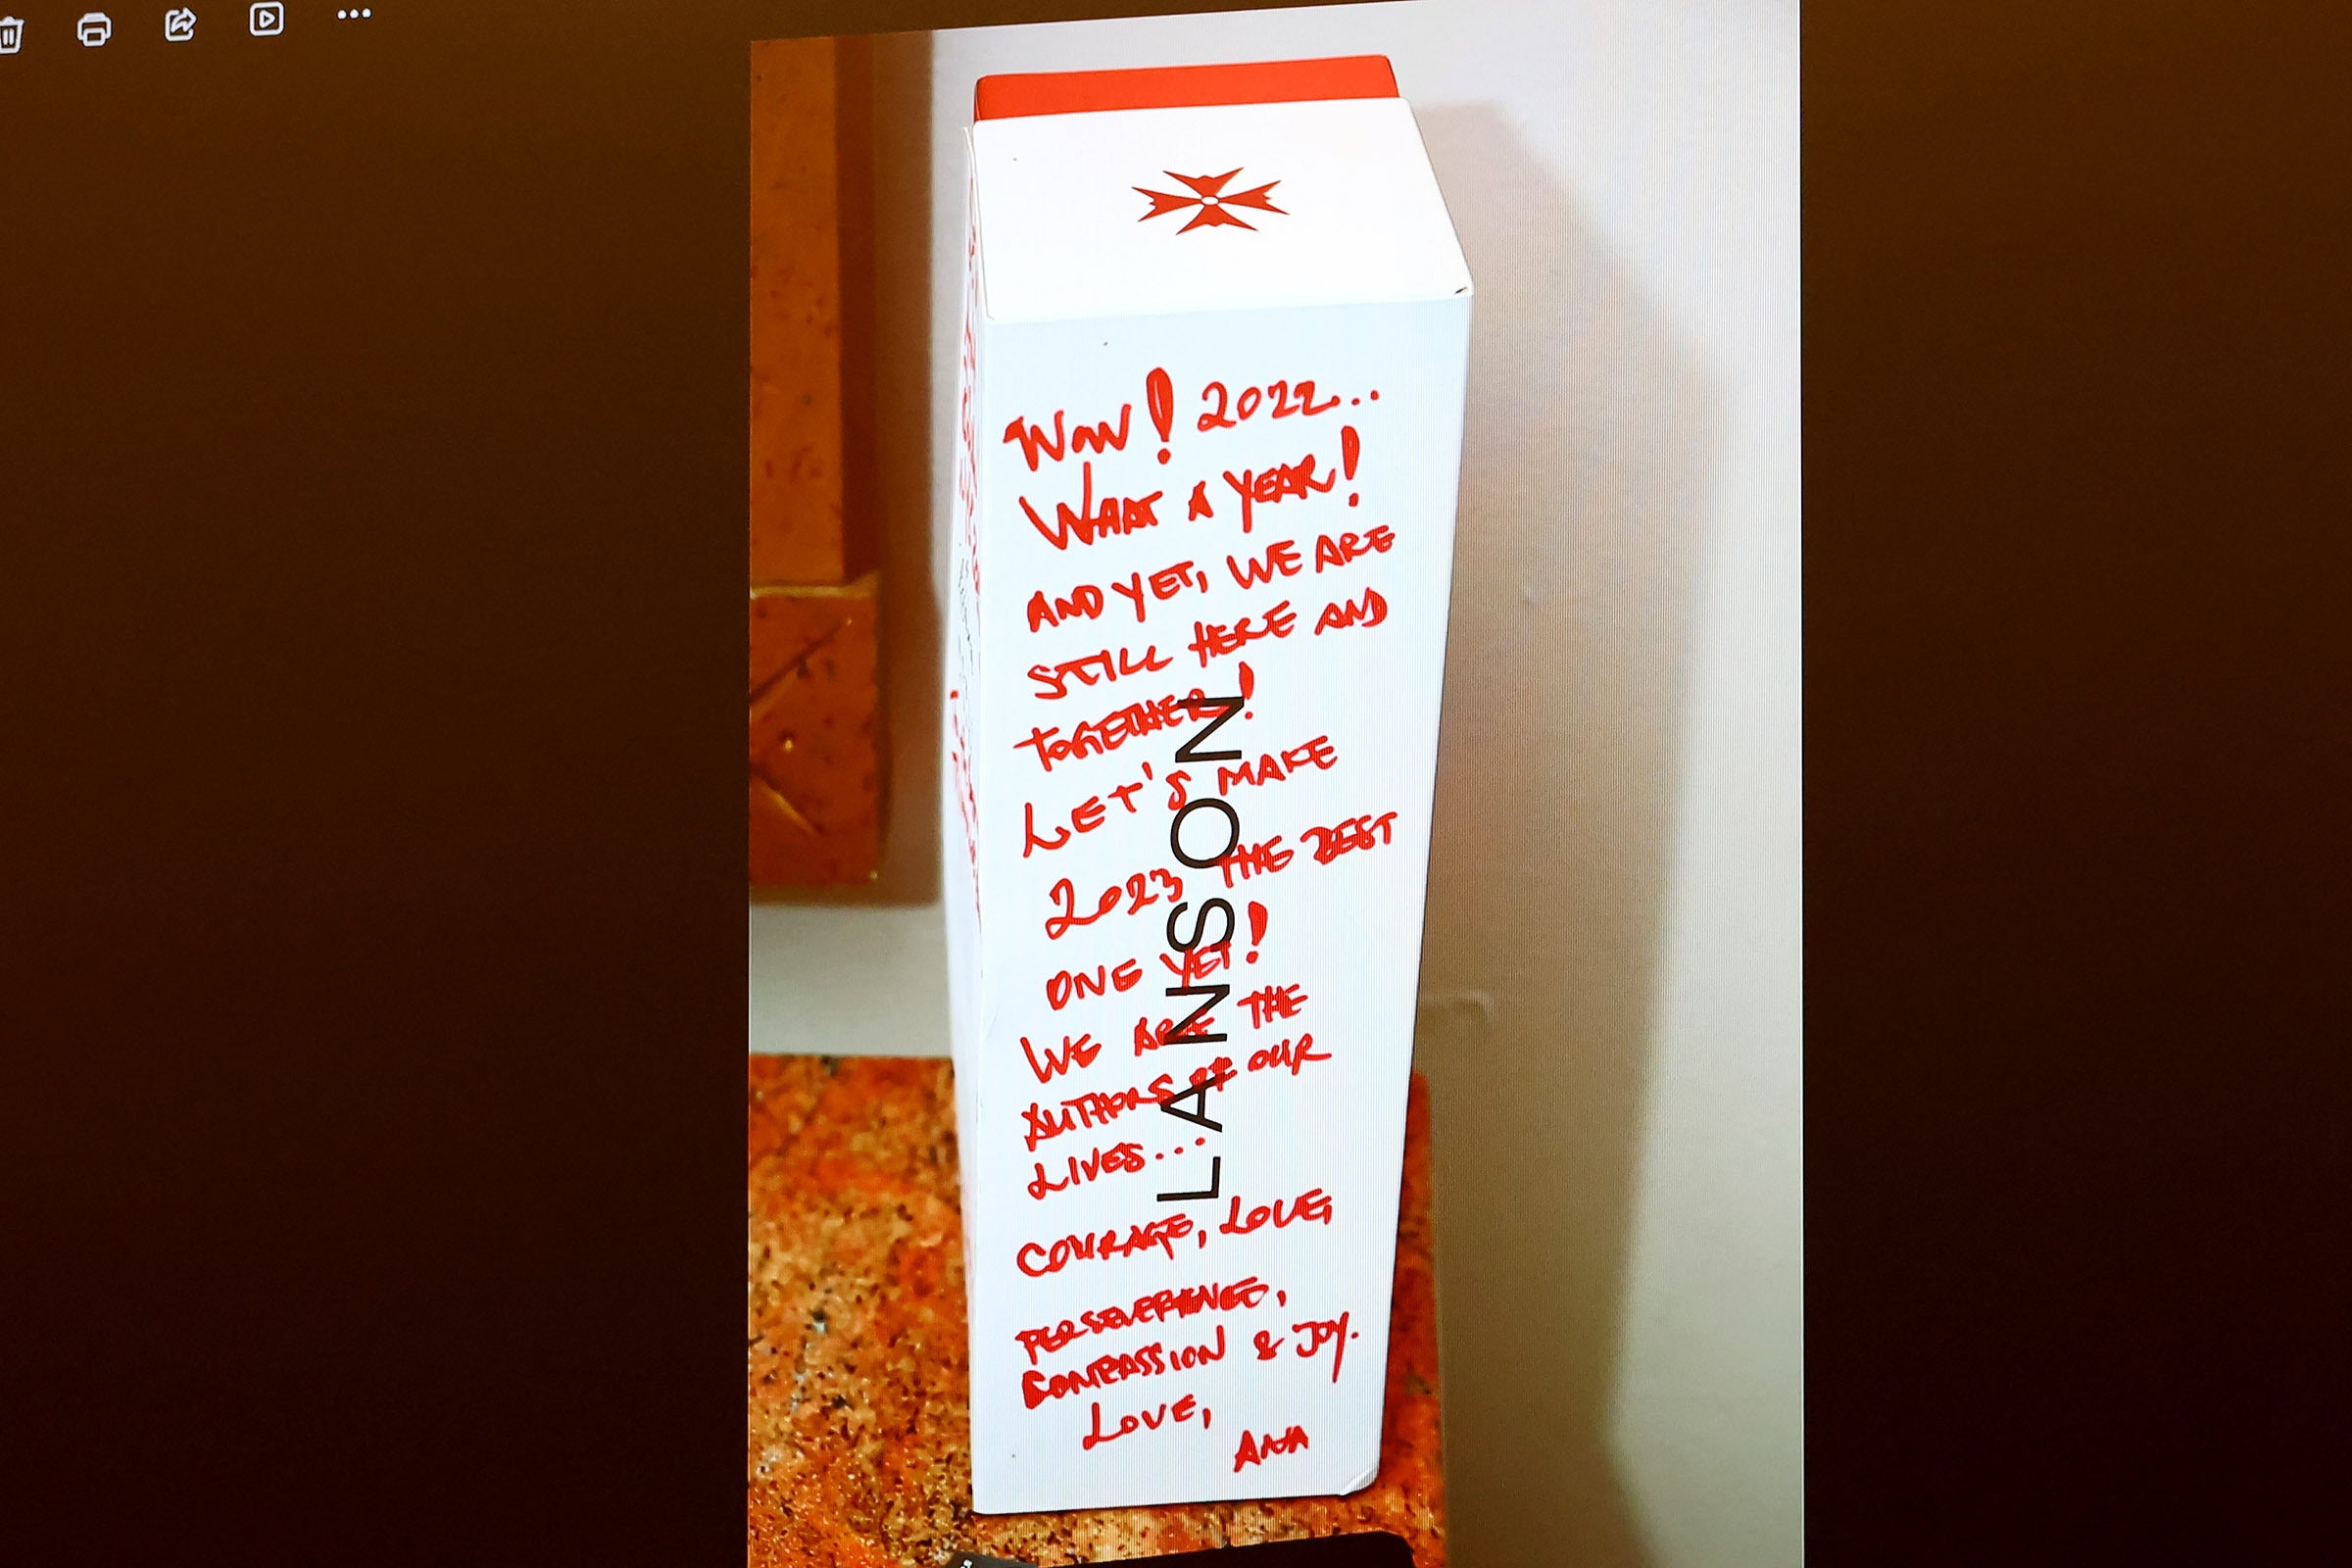 Wow! 2022..
WHAT A YEAR!
AND YET, WE ARE
STILL HERE AND
TOGETHER!
LET'S MAKE
2023 THE BEST
ONE YET!
WE ARE THE
AUTHORS OF OUR
LIVES...
COURAGE, LOVE,
PERSEVERANCE,
COMPASSION & JOY.
LOVE,
ANA
LANSON